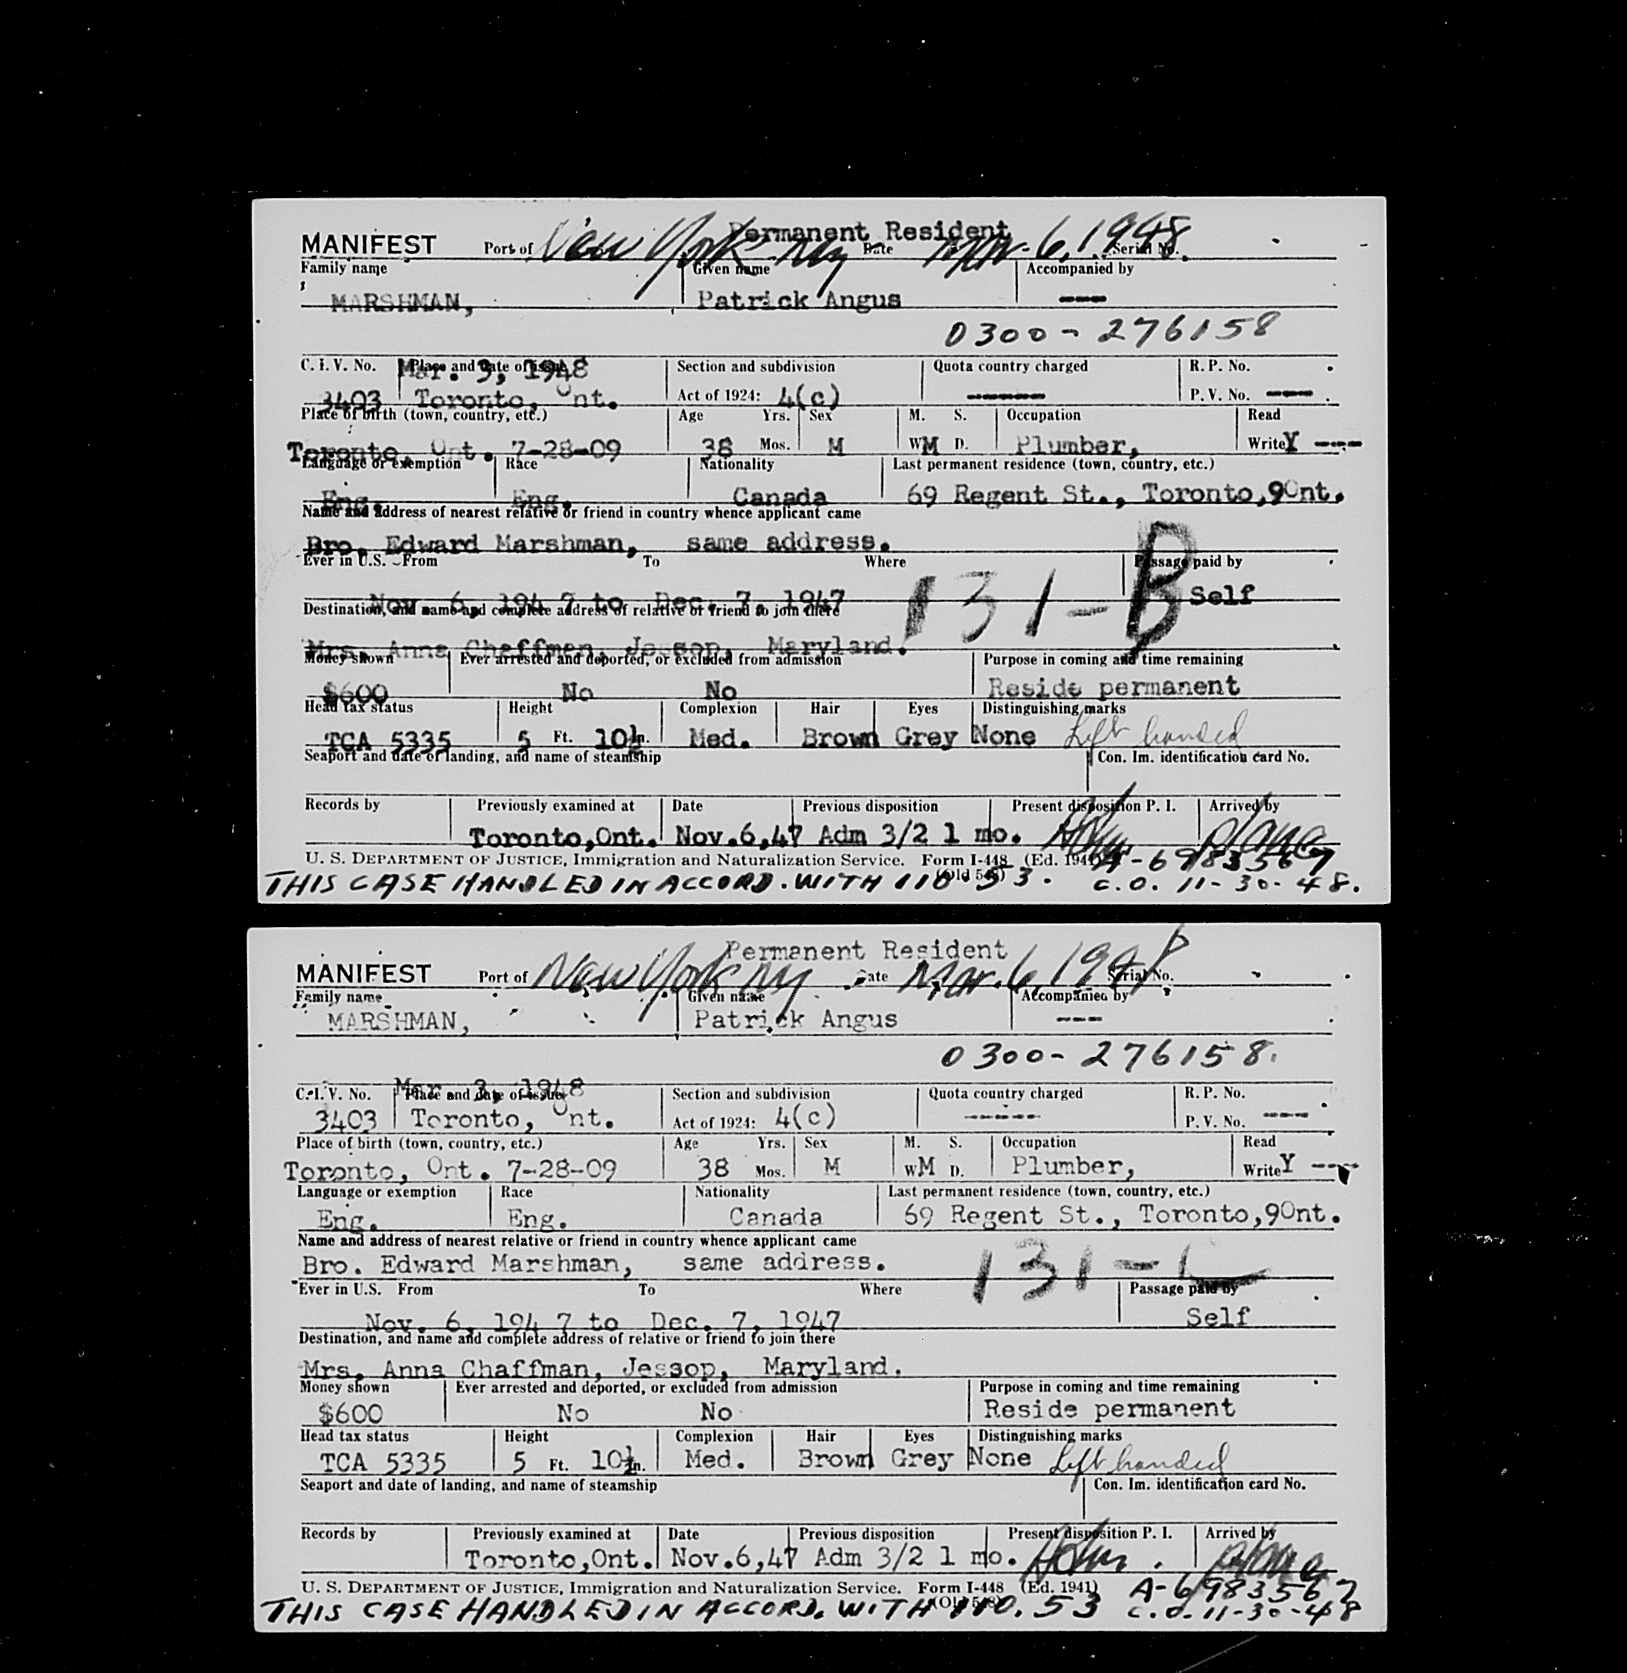 Permanent Resident
MANIFEST Port of New York NY Date Mar. 6, 1948 Serial No.
Family name Given name Accompanied by
MARSHMAN, Patrick Angus ---
0300-276158
Mar. 3, 1948
C. I. V. No. Place and date of issue Section and subdivision Quota country charged R. P. No.
3403 Toronto, Ont. Act of 1924: 4(c) ------ P. V. No. ---
Place of birth (town, country, etc.) Age Yrs. Sex M. S. Occupation Read
Toronto, Ont. 7-28-09 38 Mos. M WM D. Plumber, Write Y ---
Language or exemption Race Nationality Last permanent residence (town, country, etc.)
Eng. Eng. Canada 69 Regent St., Toronto,9Ont.
Name and address of nearest relative or friend in country whence applicant came
Bro. Edward Marshman, same address.
Ever in U.S. From To Where Passage paid by
Nov. 6, 194 7 to Dec. 7, 1947 131-B Self
Destination, and name and complete address of relative or friend to join there
Mrs. Anna Chaffman, Jessop, Maryland.
Money shown Ever arrested and deported, or excluded from admission Purpose in coming and time remaining
$600 No No Reside permanent
Head tax status Height Complexion Hair Eyes Distinguishing marks
TCA 5335 5 Ft. 10½ In. Med. Brown Grey None Left handed
Seaport and date of landing, and name of steamship Con. Im. identification card No.
Records by Previously examined at Date Previous disposition Present disposition P. I. Arrived by
Toronto,Ont. Nov.6,47 Adm 3/2 1 mo.
U. S. DEPARTMENT OF JUSTICE, Immigration and Naturalization Service. Form I-448 (Ed. 1941) A-6983567
(Old 548)
THIS CASE HANDLED IN ACCORD. WITH 110.53. C.O. 11-30-48.
Permanent Resident
MANIFEST Port of New York NY Date Mar. 6 1948 Serial No.
Family name Given name Accompanied by
MARSHMAN, Patrick Angus ---
0300-276158.
Mar. 3, 1948
C. I. V. No. Place and date of issue Section and subdivision Quota country charged R. P. No.
3403 Toronto, Ont. Act of 1924: 4(c) ------ P. V. No. ---
Place of birth (town, country, etc.) Age Yrs. Sex M. S. Occupation Read
Toronto, Ont. 7-28-09 38 Mos. M WM D. Plumber, Write Y ---
Language or exemption Race Nationality Last permanent residence (town, country, etc.)
Eng. Eng. Canada 69 Regent St., Toronto,9Ont.
Name and address of nearest relative or friend in country whence applicant came
Bro. Edward Marshman, same address. 131-C
Ever in U.S. From To Where Passage paid by
Nov. 6, 194 7 to Dec. 7, 1947 Self
Destination, and name and complete address of relative or friend to join there
Mrs. Anna Chaffman, Jessop, Maryland.
Money shown Ever arrested and deported, or excluded from admission Purpose in coming and time remaining
$600 No No Reside permanent
Head tax status Height Complexion Hair Eyes Distinguishing marks
TCA 5335 5 Ft. 10½ In. Med. Brown Grey None Left handed
Seaport and date of landing, and name of steamship Con. Im. identification card No.
Records by Previously examined at Date Previous disposition Present disposition P. I. Arrived by
Toronto,Ont. Nov.6,47 Adm 3/2 1 mo.
U. S. DEPARTMENT OF JUSTICE, Immigration and Naturalization Service. Form I-448 (Ed. 1941) A-6983567
(Old 548)
THIS CASE HANDLED IN ACCORD. WITH 110.53 C.O. 11-30-48